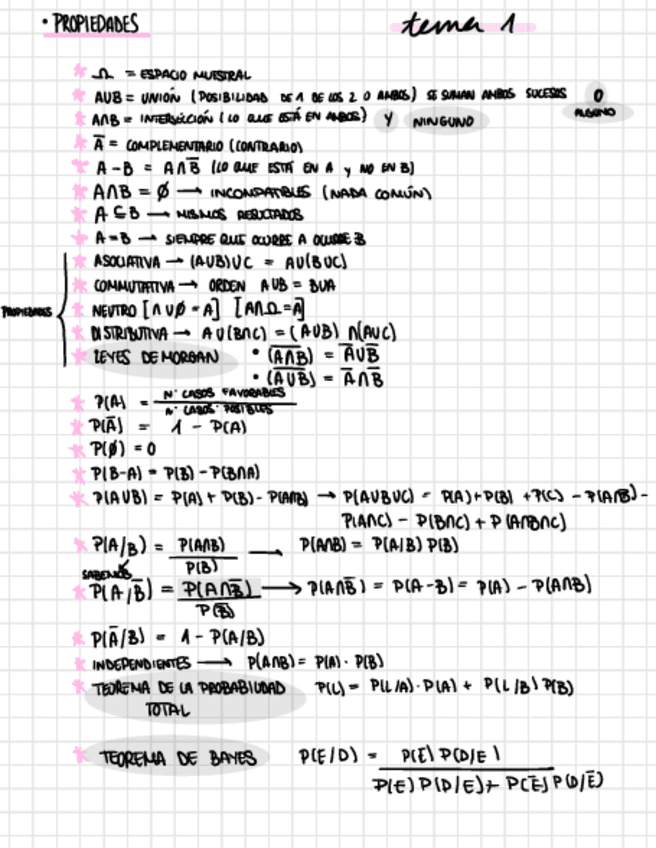 • PROPIEDADES
tema 1
Ω = ESPACIO MUESTRAL
AUB = UNIÓN (POSIBILIDAD DE 1 DE LOS 2 O AMBOS) SE SUMAN AMBOS SUCESOS O
ALGUNO
A∩B = INTERSECCIÓN (LO QUE ESTÁ EN AMBOS) Y NINGUNO
A̅ = COMPLEMENTARIO (CONTRARIO)
A - B = A∩B̅ (LO QUE ESTÁ EN A y NO EN B)
A∩B = Ø → INCOMPATIBLES (NADA COMÚN)
A ⊆ B → MISMOS RESULTADOS
A=B → SIEMPRE QUE OCURRE A OCURRE B
PROPIEDADES
ASOCIATIVA → (AUB)UC = AU(BUC)
COMMUTATIVA → ORDEN AUB = BUA
NEUTRO [A∪Ø = A] [A∩Ω=A]
DISTRIBUTIVA → AU(B∩C) = (AUB) ∩(AUC)
LEYES DE MORGAN • (A̅∩̅B̅) = A̅∪B̅
• (A̅∪̅B̅) = A̅∩B̅
P(A) = Nº CASOS FAVORABLES
Nº CASOS POSIBLES
P(A̅) = 1 - P(A)
P(Ø) = 0
P(B-A) = P(B) - P(B∩A)
P(AUB) = P(A) + P(B) - P(A∩B) → P(AUBUC) = P(A)+P(B) +P(C) - P(A∩B) -
P(A∩C) - P(B∩C) + P(A∩B∩C)
P(A/B) = P(A∩B) → P(A∩B) = P(A/B) P(B)
P(B)
SABEMOS
P(A/B̅) = P(A∩B̅) → P(A∩B̅) = P(A-B) = P(A) - P(A∩B)
P(B̅)
P(A̅/B) = 1 - P(A/B)
INDEPENDIENTES → P(A∩B) = P(A) · P(B)
TEOREMA DE LA PROBABILIDAD P(L) = P(L/A) · P(A) + P(L/B) P(B)
TOTAL
TEOREMA DE BAYES P(E/D) = P(E) P(D/E)
P(E) P(D/E) + P(E̅) P(D/E̅)